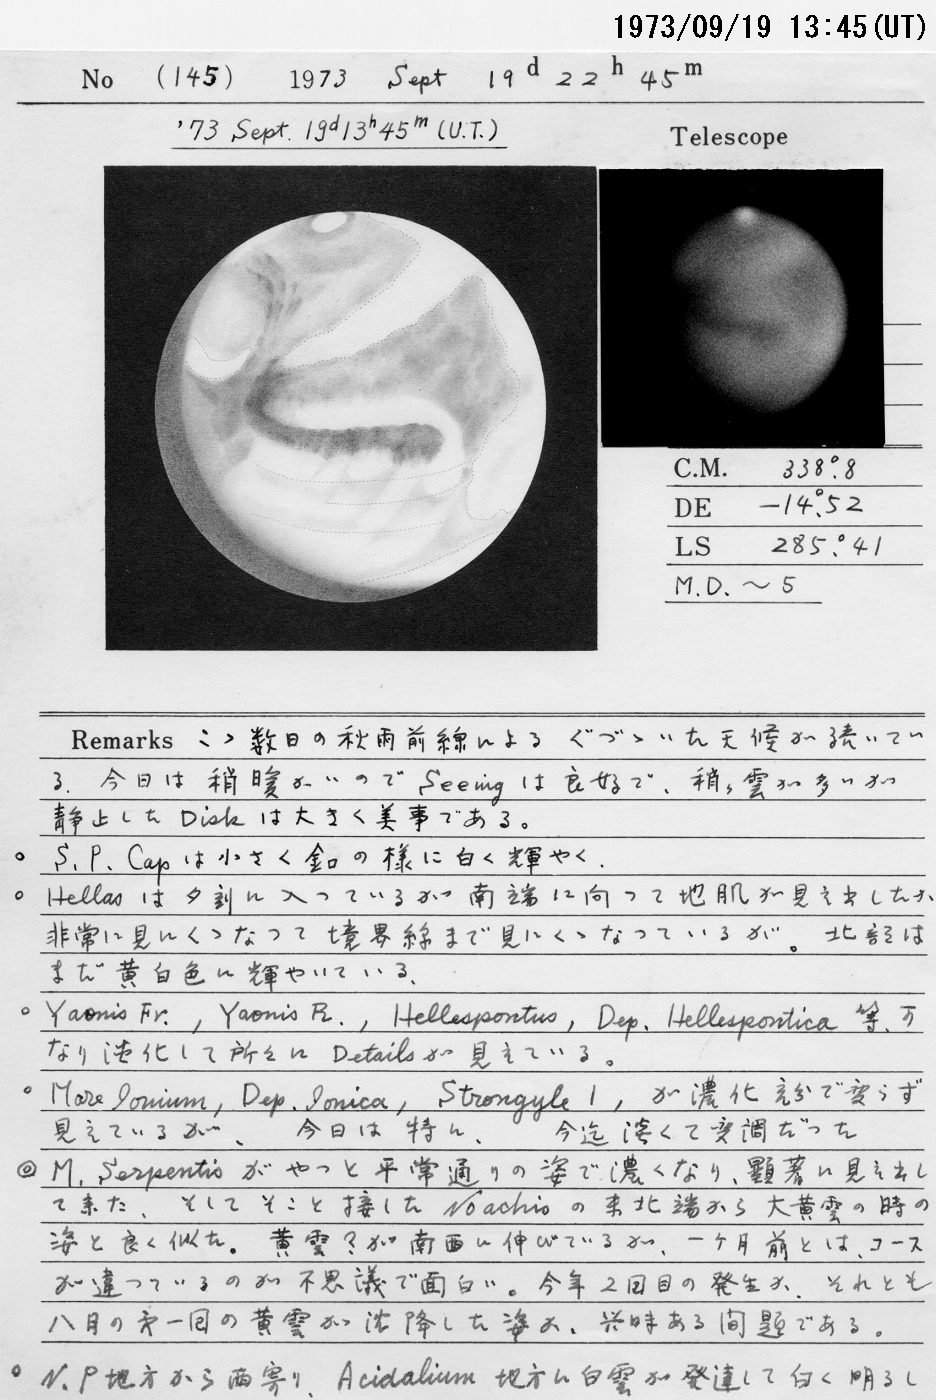 1973/09/19 13:45(UT)
No (145) 1973 Sept 19d 22h 45m
'73 Sept. 19d13h45m (U.T.)
Telescope
C.M. 338°.8
DE -14°.52
LS 285.°41
M.D. ~ 5
Remarks こゝ数日の秋雨前線による ぐづついた天候が続いてい
る. 今日は 稍暖かいので Seeing は良好で、稍々雲が多いが
静止した Disk は大きく美事である。
○ S. P. Cap は小さく 釦の様に白く輝やく.
○ Hellas は夕刻に入っているが 南端に向って地肌が見え出したか
非常に見にくゝなって 境界線まで見にくゝなっているが。北部は
まだ 黄白色に輝やいている.
○ Yaonis Fr. , Yaonis R. , Hellespontus, Dep. Hellespontica 等、可
なり淡化して所々に Details が 見えている。
○ Mare Ionium, Dep. Ionica, Strongyle 1, が濃化充分で変らず
見えているが、 今日は特に、 今迄淡くて変調だった
◎ M. Serpentis がやっと平常通りの姿で濃くなり、顕著に見え出し
て来た、そしてそこと接した Noachis の東北端から大黄雲の時の
姿と良く似た。黄雲?が南西に伸びているが、一ケ月前とは、コース
が違っているのが不思議で面白い。今年2回目の発生か、それとも
八月の第一回の黄雲が沈降した姿か、興味ある問題である。
○ N. P地方から西寄り、Acidalium 地方に白雲が発達して白く明るし